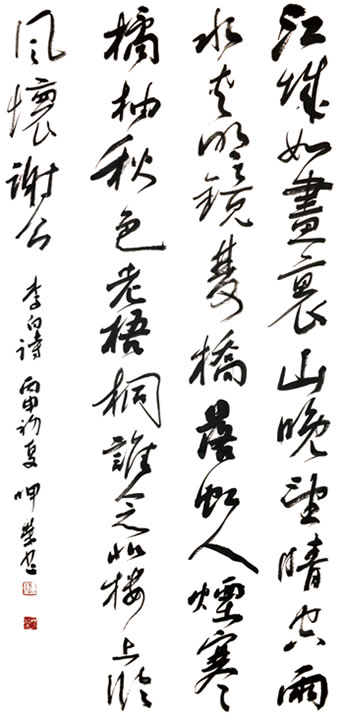 江城如畫裏山晚望晴空兩
水夾明鏡雙橋落虹人煙寒
橘柚秋色老梧桐誰念北樓上臨
風懷謝公
李白詩 丙申初夏